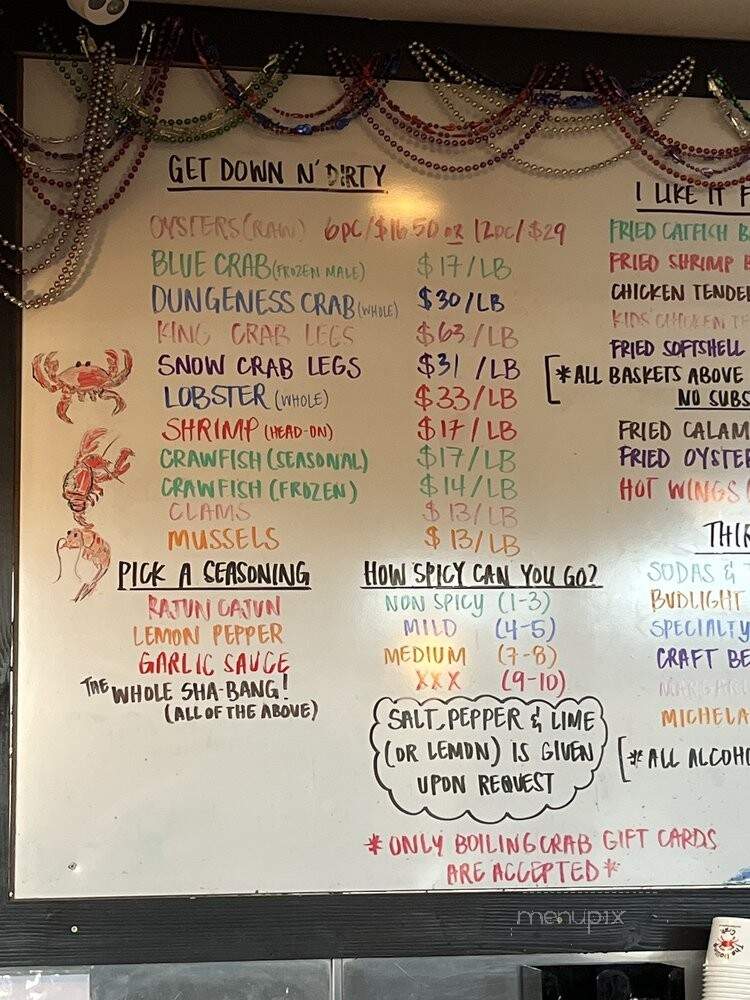 GET DOWN N' DIRTY
OYSTERS (RAW) 6PC/$16.50 OR 12PC/$29
BLUE CRAB (FROZEN MALE) $17/LB
DUNGENESS CRAB (WHOLE) $30/LB
KING CRAB LEGS $63/LB
SNOW CRAB LEGS $31/LB
LOBSTER (WHOLE) $33/LB
SHRIMP (HEAD-ON) $17/LB
CRAWFISH (SEASONAL) $17/LB
CRAWFISH (FROZEN) $14/LB
CLAMS $13/LB
MUSSELS $13/LB
PICK A SEASONING
RAJUN CAJUN
LEMON PEPPER
GARLIC SAUCE
THE WHOLE SHA-BANG!
(ALL OF THE ABOVE)
HOW SPICY CAN YOU GO?
NON SPICY (1-3)
MILD (4-5)
MEDIUM (7-8)
XXX (9-10)
SALT, PEPPER & LIME
(OR LEMON) IS GIVEN
UPON REQUEST
*ONLY BOILING CRAB GIFT CARDS
ARE ACCEPTED*
I LIKE IT F
FRIED CATFICH B
FRIED SHRIMP B
CHICKEN TENDE
KIDS CHICKEN TE
FRIED SOFTSHELL
[*ALL BASKETS ABOVE
NO SUBS
FRIED CALAM
FRIED OYSTE
HOT WINGS
THIR
SODAS &
BUDLIGHT
SPECIALTY
CRAFT BE
MICHELA
[*ALL ALCOHO
menupix